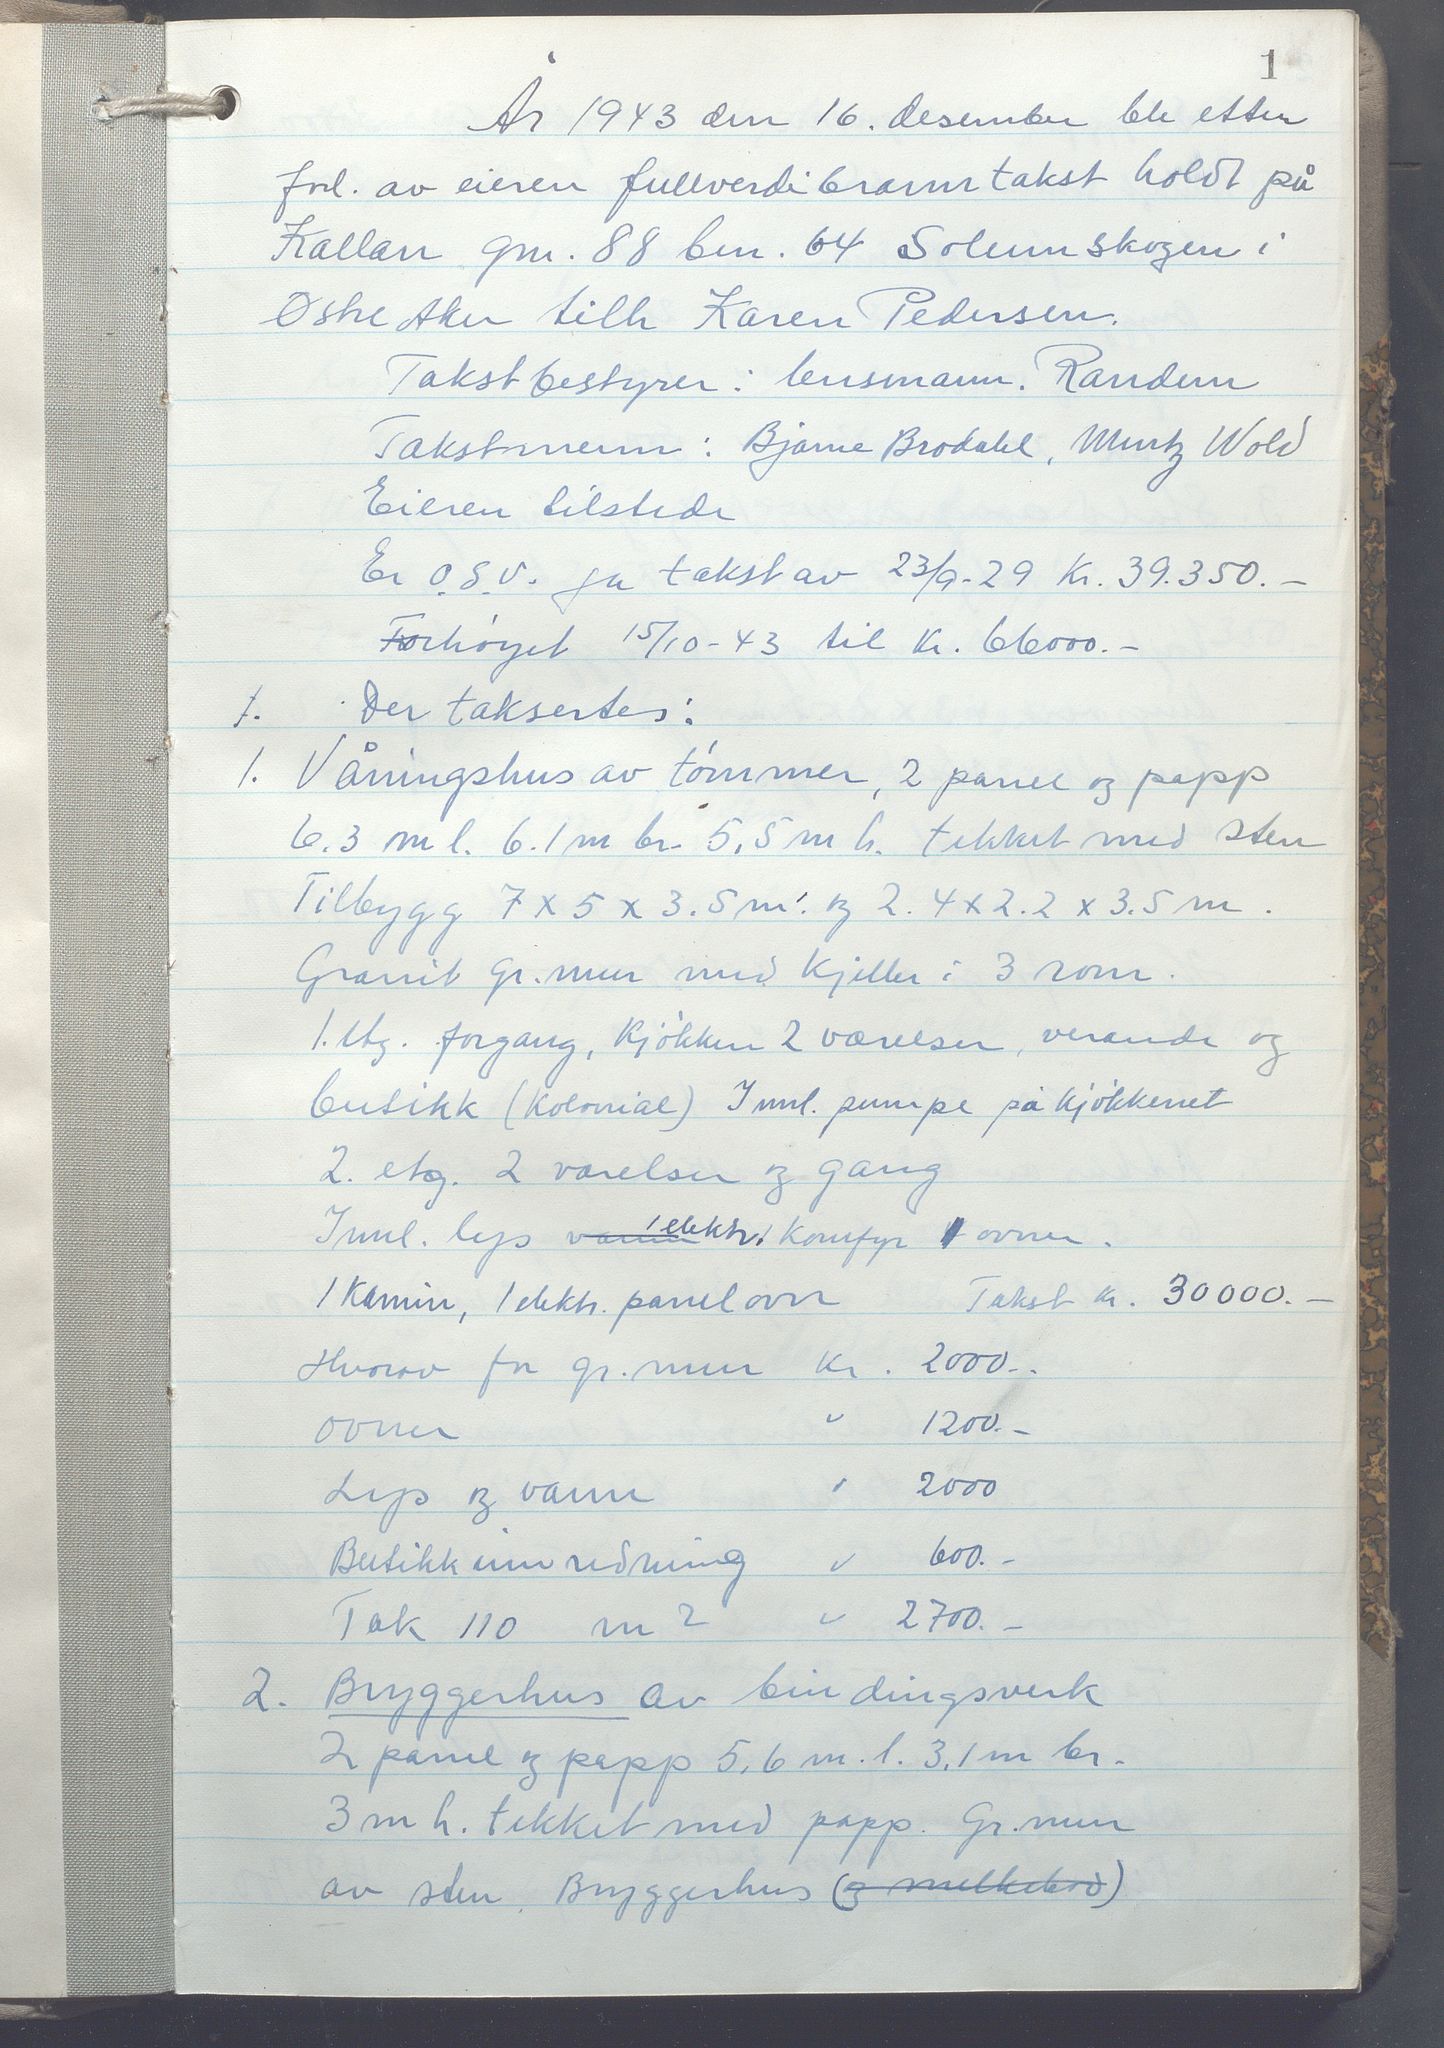 1
År 1943 den 16. desember ble etter
forl. av eieren fullverdibranntakst holdt på
Kallan gnr. 88 bnr. 64 Solemskogen i
Østre Aker tilh Karen Pedersen.
Takstbestyrer: lensmann. Randem
Takstmenn: Bjarne Brodahl, Wold
Eieren tilstede
Er O.S.V. ja takst av 23/9-29 Kr. 39.350.-
Forhøyet 15/10-43 til kr. 66000.-
1. Der taksertes:
1. Våningshus av tømmer, 2 panel og papp
6.3 m l. 6.1 m br. 5,5 m h. tekket med sten
Tilbygg 7 x 5 x 3.5 m. og 2.4 x 2.2 x 3.5 m.
Granit gr.mur med kjeller i 3 rom.
1. etg. forgang, kjøkken 2 værelser, veranda og
butikk (kolonial) Innl. pumpe på kjøkkenet
2. etg. 2 værelser og gang
Innl. lys vann 1 elektr. komfyr 1 ovner.
1 Kamin, 1 elektr. panelovn Takst kr. 30000.-
Hvorav for gr.mur kr. 2000.-
ovner " 1200.-
Lys og vann " 2000
Butikkinnredning " 600.-
Tak 110 m2 " 2700.-
2. Bryggerhus av bindingsverk
2 panel og papp 5,6 m. l. 3,1 m br.
3 m h. tekket med papp. Gr.mur
av sten. Bryggerhus (og melkebod)